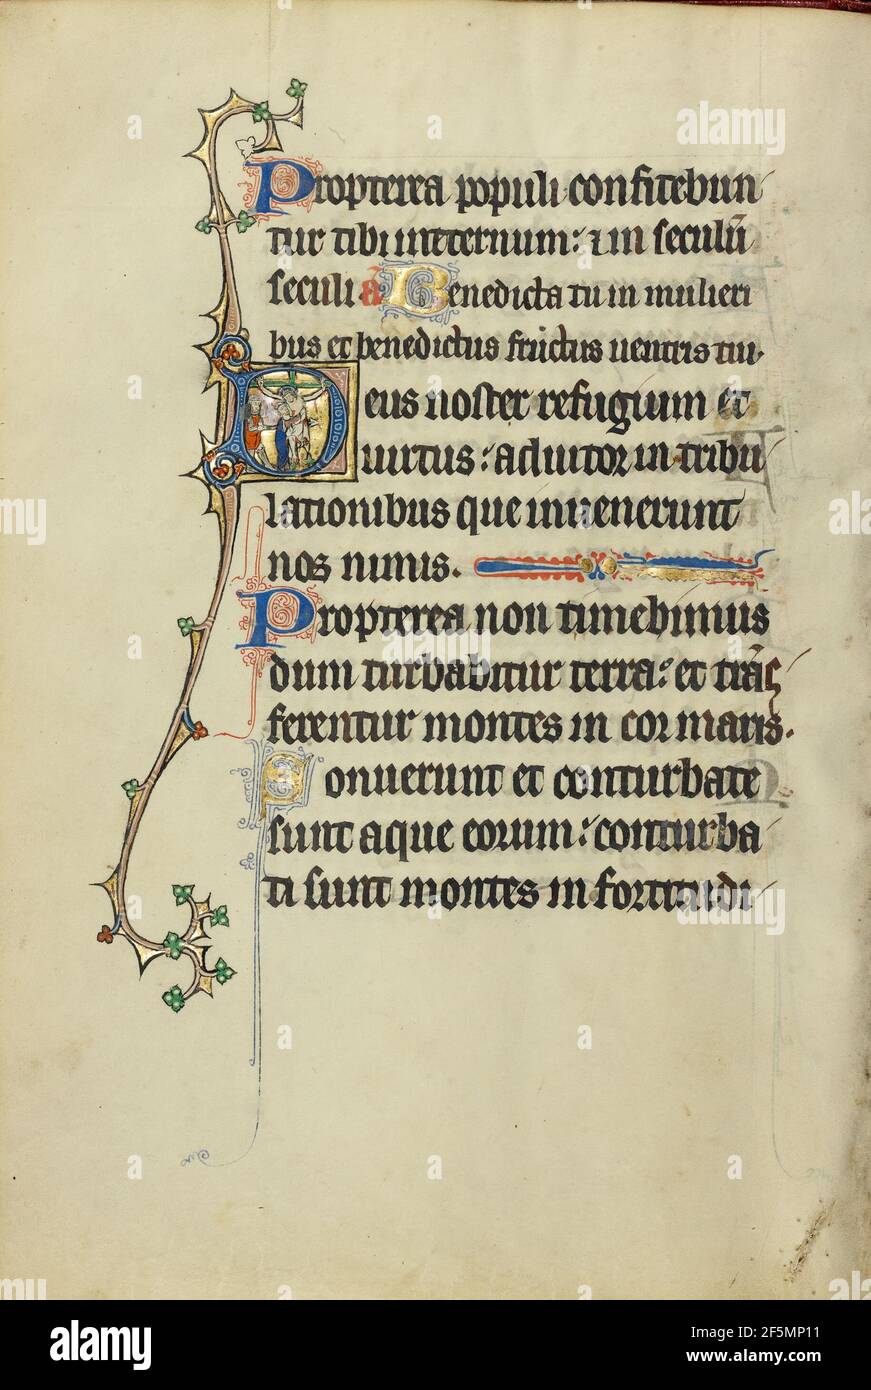 Propterea populi confitebun
tur tibi ineternum: ⁊ in seculū
seculi ā Benedicta tu in mulieri
bus et benedictus fructus uentris tui.
Deus noster refugium et
uirtus: adiutor in tribu
lationibus que inuenerunt
nos nimis.
Propterea non timebimus
dum turbabitur terra: et trās
ferentur montes in cor maris.
Sonuerunt et conturbate
sunt aque eorum: conturba
ti sunt montes in fortitudi
a alamy
alamy
Image ID: 2F5MP11
www.alamy.com